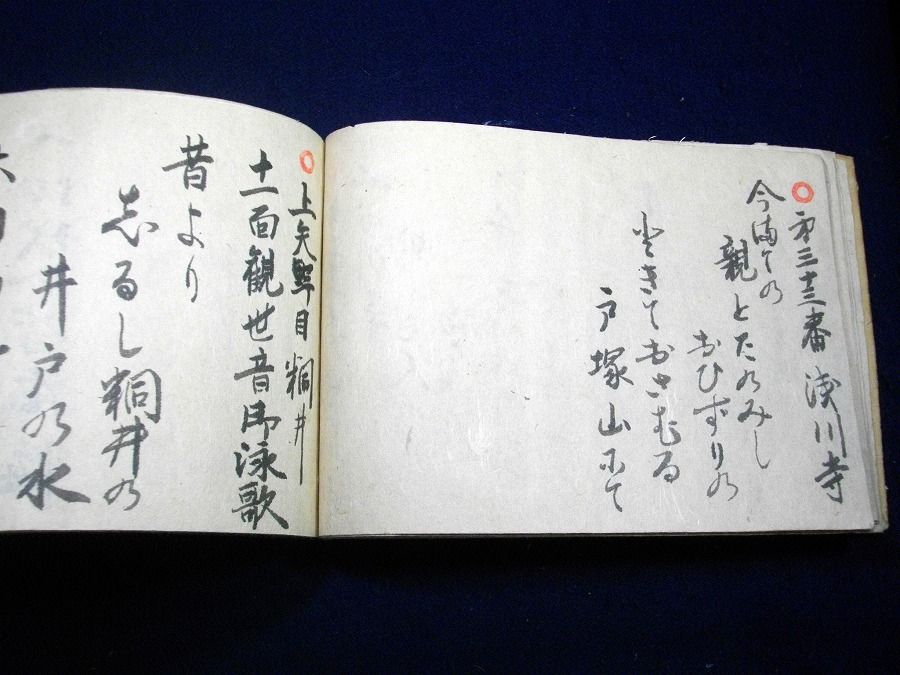 第三十三番 浅川寺
今満での
親とたのみし
おひずりの
ときておさむる
戸塚山にて
上矢野目 桐井
十一面観世音御泳歌
昔より
志るし桐井の
井戸の水